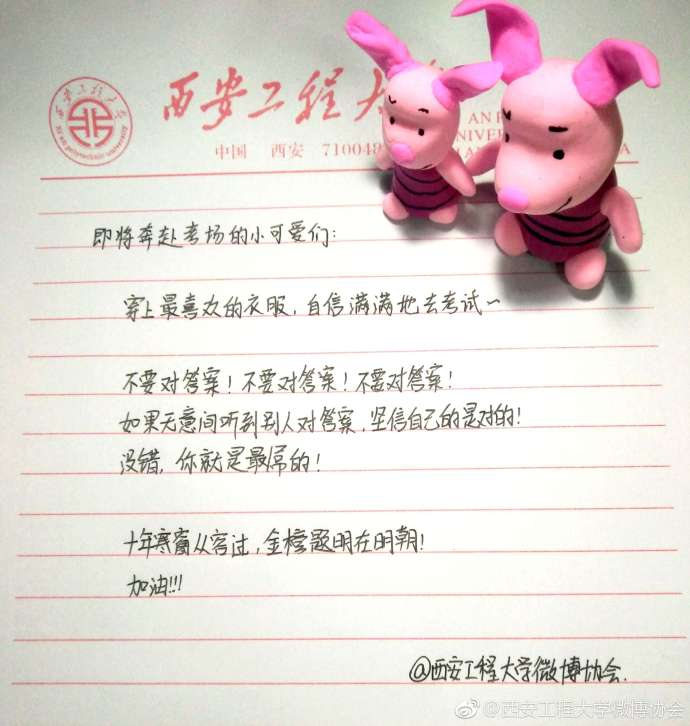 西安工程大
AN P
NIVER
AN
A
中国 西安 710048
西安工程大学
Xi'an polytechnic university
即将奔赴考场的小可爱们:
穿上最喜欢的衣服,自信满满地去考试~
不要对答案!不要对答案!不要对答案!
如果无意间听到别人对答案,坚信自己的是对的!
没错,你就是最屌的!
十年寒窗从容过,金榜题明在明朝!
加油!!!
@西安工程大学微博协会.
@西安工程大学微博协会